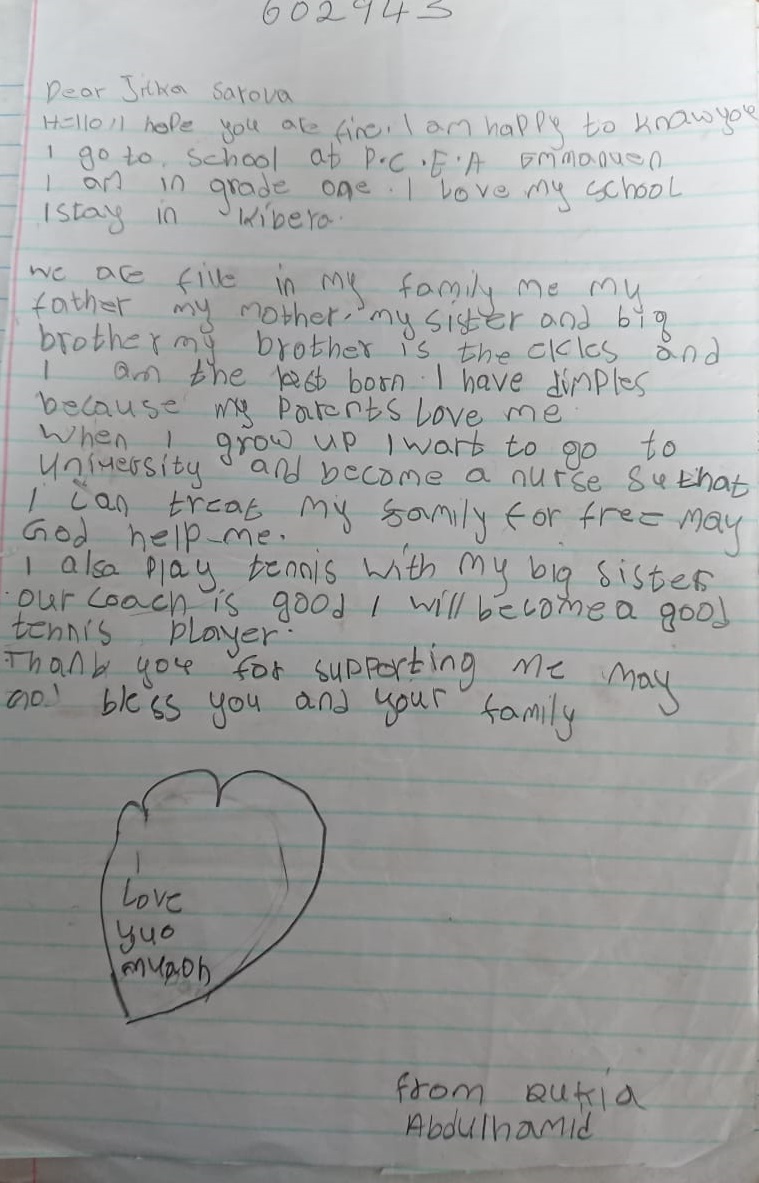 602943
Dear Jitka Sarova
Hello I hope you are fine. I am happy to know you
I go to school at P.C.E.A Emmanuen
I am in grade one. I Love my school
I stay in Kibera.
we are five in my family me my
father my mother, my sister and big
brother my brother is the and
I am the last born. I have dimples
because my parents Love me.
When I grow up I want to go to
university and become a nurse su that
I can treat my family for free may
God help me.
I also play tennis with my big sister
our coach is good I will become a good
tennis player.
Thank you for supporting me may
God bless you and your family
I
Love
yuo
from Rukia
Abdulhamid